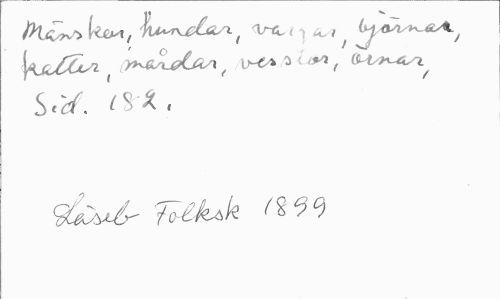 Mänsker, hundar, vargar, björnar,
katter, mårdar, vesslor, örnar,
Sid. 182.
Läseb Folksk 1899